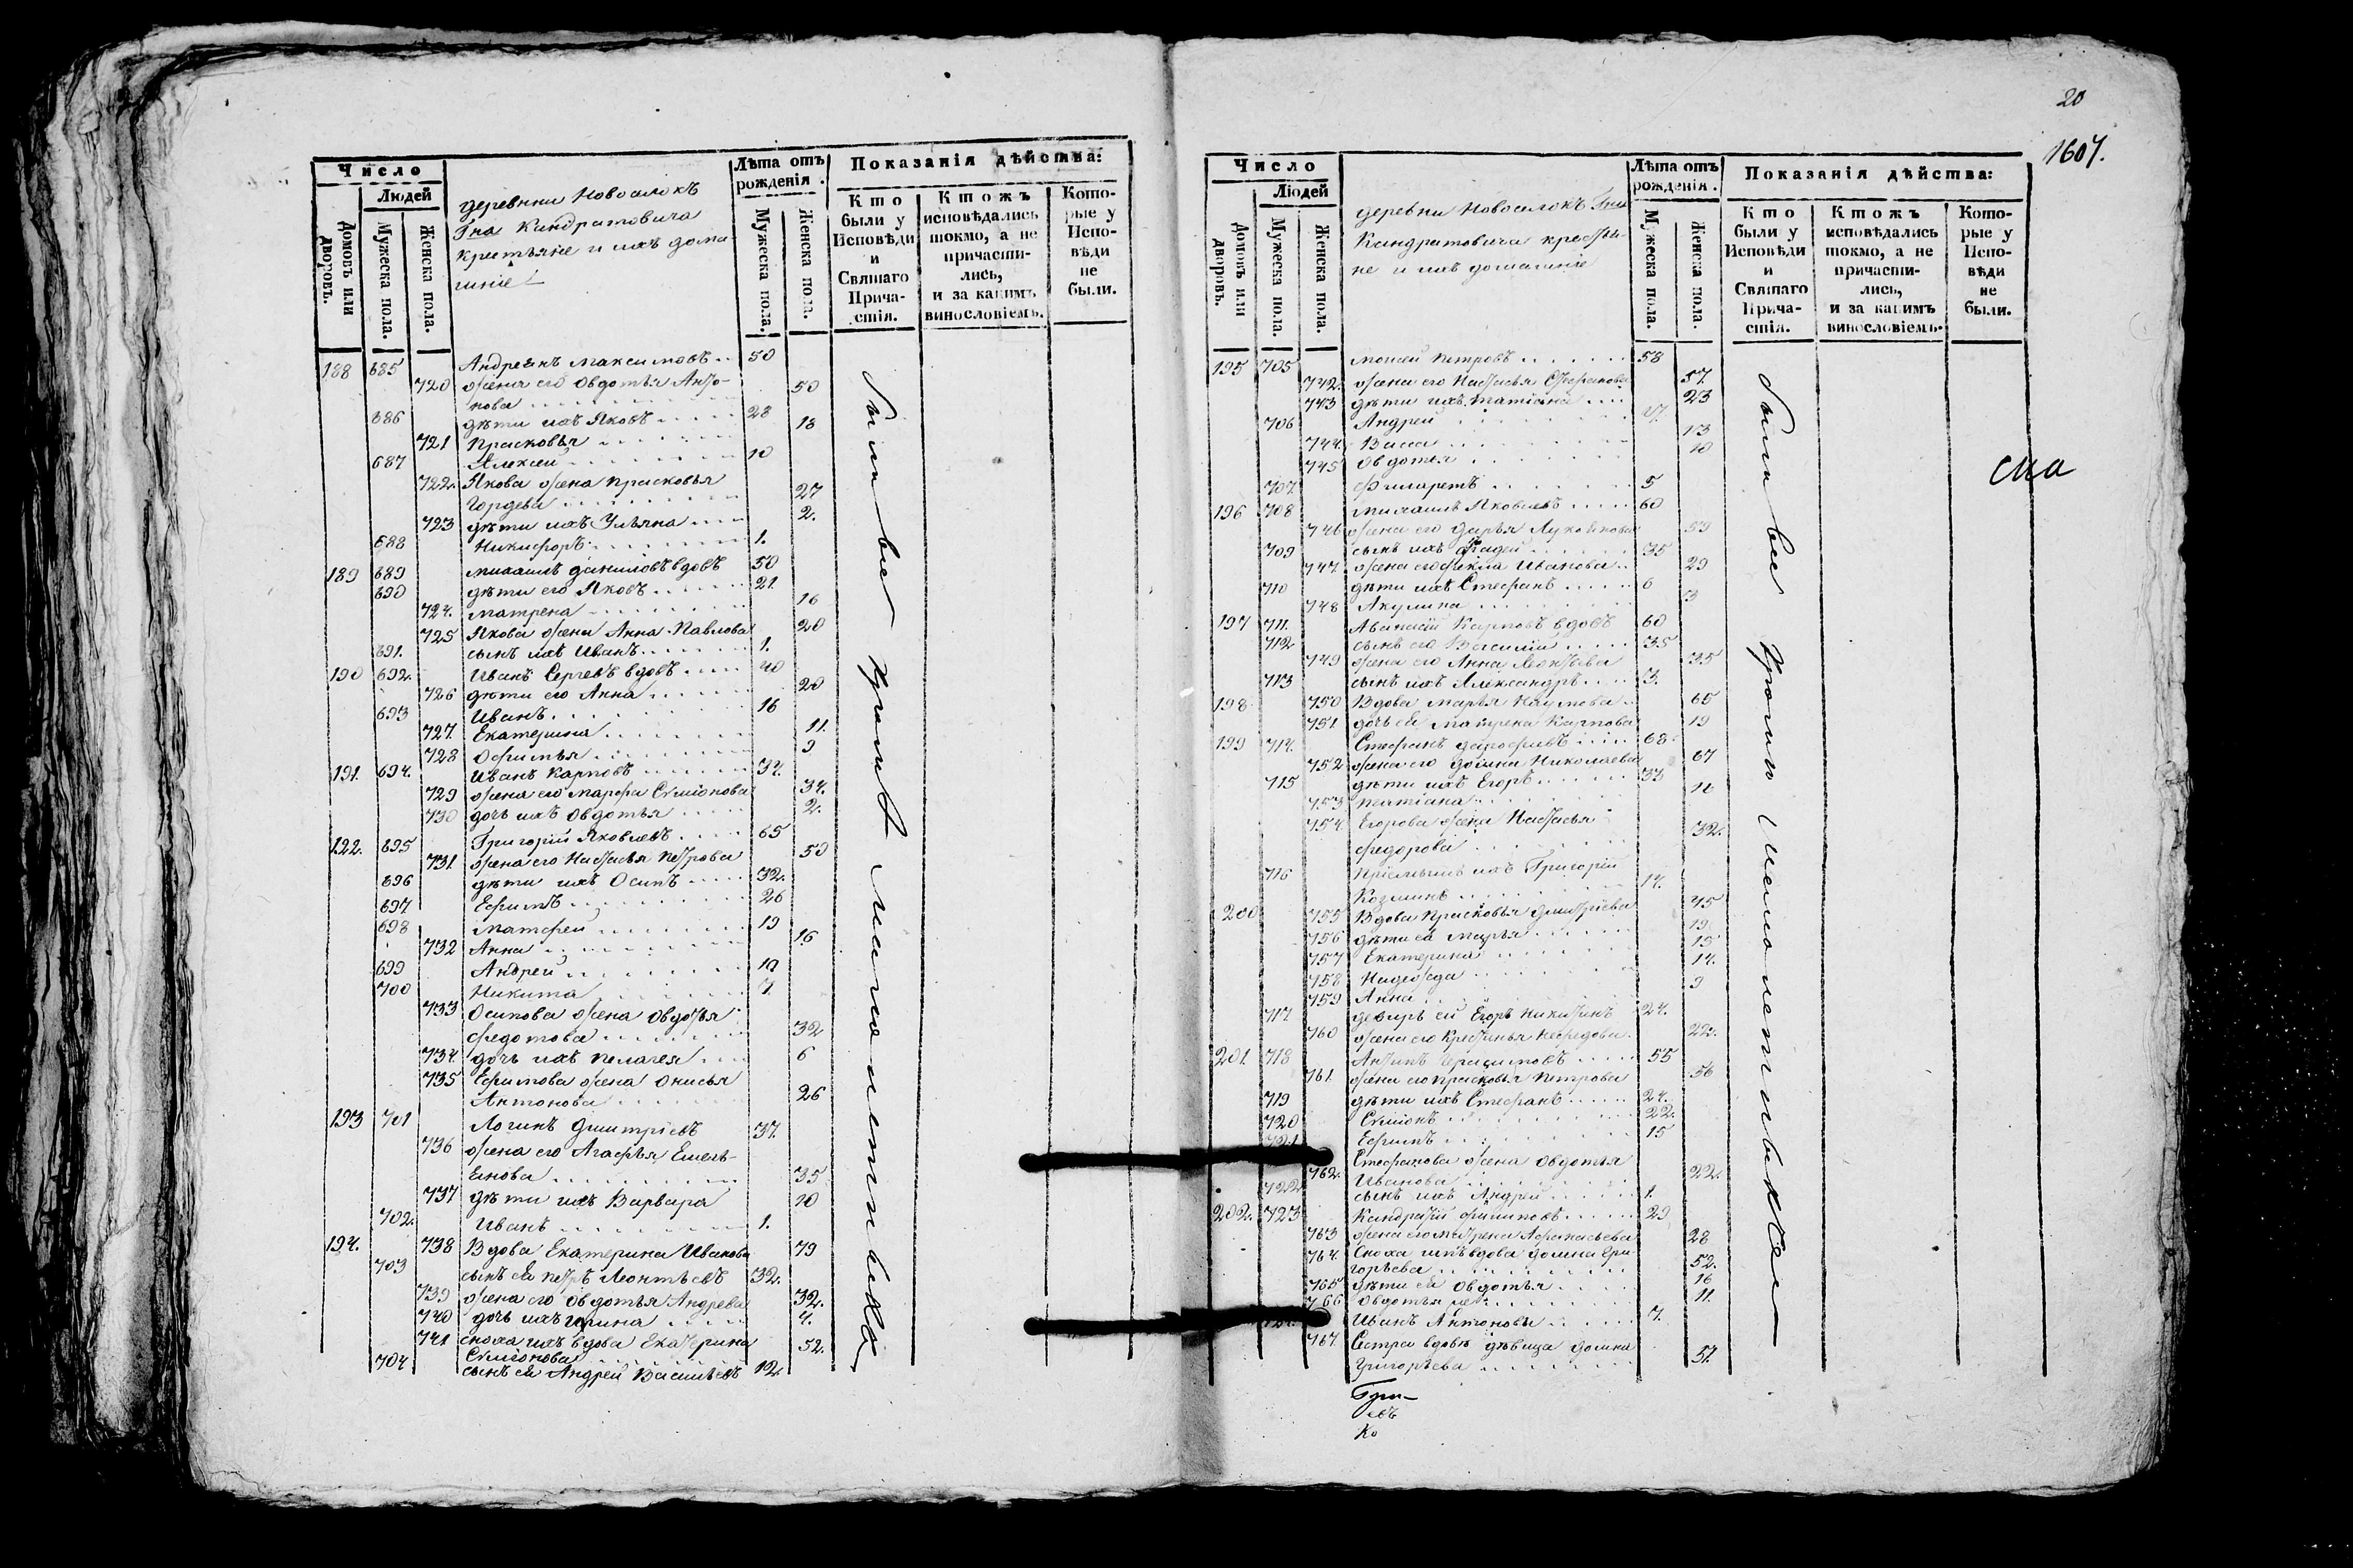 20
1607.
Число
Людей
Домовъ или дворовъ.
Мужеска пола.
Женска пола.
деревни Новоселокъ
Гна Кандратовича
крестьяне и ихъ дома-
шніе
Лѣта отъ рожденія.
Мужеска пола.
Женска пола.
Показанія дѣйства:
Кто были у Исповѣди и Святаго Прича-стія.
Ктожъ исповѣдались токмо, а не причасти-лись, и за какимъ винословіемъ.
Кото-рые у Испо-вѣди не были.
188 685 Андреянъ Максимовъ 50
720 жена его Овдотья Анто- 50
нова
686 дѣти ихъ Яковъ 28
721 Прасковья 18
687 Алексей 10
722 Якова жена Прасковья
Гордева 27
723 дѣти ихъ Ульяна 2.
688 Никифоръ 1.
189 689 Михаилъ Даниловъ вдовъ 50
690 дѣти его Яковъ 21.
724. Матрена 16
725 Якова жена Анна Павлова 20
691. сынъ ихъ Иванъ 1.
190 692. Иванъ Сергевъ вдовъ 40
726 дѣти его Анна 20
693 Иванъ 16
727. Екатерина 11.
728 Офимья 9
191. 694. Иванъ Карповъ 34.
729 жена его Марфа Семіонова 34.
730 дочь ихъ Овдотья 2.
122. 695 Григорій Яковлевъ 65
731. жена его Настасья Петрова 50
696 дѣти ихъ Осипъ 32.
697 Ефимъ 26
698 Матфей 19
732 Анна 16
699 Андрей 10
700 Никита 7.
733 Осипова жена Овдотья
Федотова 32
734. дочь ихъ Пелагея 6
735 Ефимова жена Онисья
Антонова 26
193 701 Логинъ Дмитріевъ 37.
736 жена его Агафья Емель-
янова 35
737 дѣти ихъ Варвара 10
702. Иванъ 1.
194. 738 Вдова Екатерина Иванова 79
703 сынъ ея Петръ Леонтьевъ 32.
739 жена его Овдотья Андрева 32.
740 дочь ихъ Ирина 4.
741 сноха ихъ вдова Екатерина 52.
Семіонова
704 сынъ ея Андрей Васильевъ 12.
были все кромѣ малолетнихъ
Число
Людей
Домовъ или дворовъ.
Мужеска пола.
Женска пола.
деревни Новоселокъ Гна
Кандратовича крестья-
не и ихъ домашніе
Лѣта отъ рожденія.
Мужеска пола.
Женска пола.
Показанія дѣйства:
Кто были у Исповѣди и Святаго Прича-стія.
Ктожъ исповѣдались токмо, а не причасти-лись, и за какимъ винословіемъ.
Кото-рые у Испо-вѣди не были.
195 705 Моисей Петровъ 58
742. жена его Настасья Стефанова 57.
743 дѣти ихъ Татіана 23
706 Андрей
744. Васса 13
745 Овдотья 10
707. Филаретъ 5
196 708 Михаилъ Яковлевъ 60
746 жена его Дарья Лукоянова 59
709 сынъ ихъ Фадей 35
747. жена его Фекла Иванова 29
710 дѣти ихъ Стефанъ 6
748 Акулина 3
197 711. Афанасій Карповъ вдовъ 60
712 сынъ его Василій 35
749 жена его Анна Леонтьева 35
713 сынъ ихъ Александръ 3.
198 750 Вдова Марья Наумова 65
751. дочь ея Матрена Карпова 19
199 714. Стефанъ Дарофиевъ 68
752 жена его Домна Николаева 67
715 дѣти ихъ Егоръ 33
753 Татіана 10
754. Егорова жена Настасья
Федорова 32.
716 Пріемышъ ихъ Григорій
Козминъ 14.
200 755 Вдова Прасковья Дмитріева 45
756 дѣти ея Марья 19.
757 Екатерина 15
758 Надежда 14.
759 Анна 9
717 деверь ей Егоръ Никитинъ 24.
760 жена его Крестинья Нефедова 22.
201. 718 Антипъ Герасимовъ 55
761. жена его Прасковья Петрова 56
719 дѣти ихъ Стефанъ 24.
720 Семіонъ 22.
721 Ефимъ 15
Стефанова жена Овдотья
762. Иванова 22.
722 сынъ ихъ Андрей 1.
202. 723 Кандратій Филиповъ 29
763 жена его Матрена Афанасьева 28
764. Сноха ихъ вдова Домна Гри-
горьева 52.
765 дѣти ея Овдотья 16
766 Овдотья 11.
Иванъ Антоновъ 7.
767. Сестра вдовѣ дѣвица Домна
Григорьева 57.
были все кроми малолетнихъ
сма
Ко